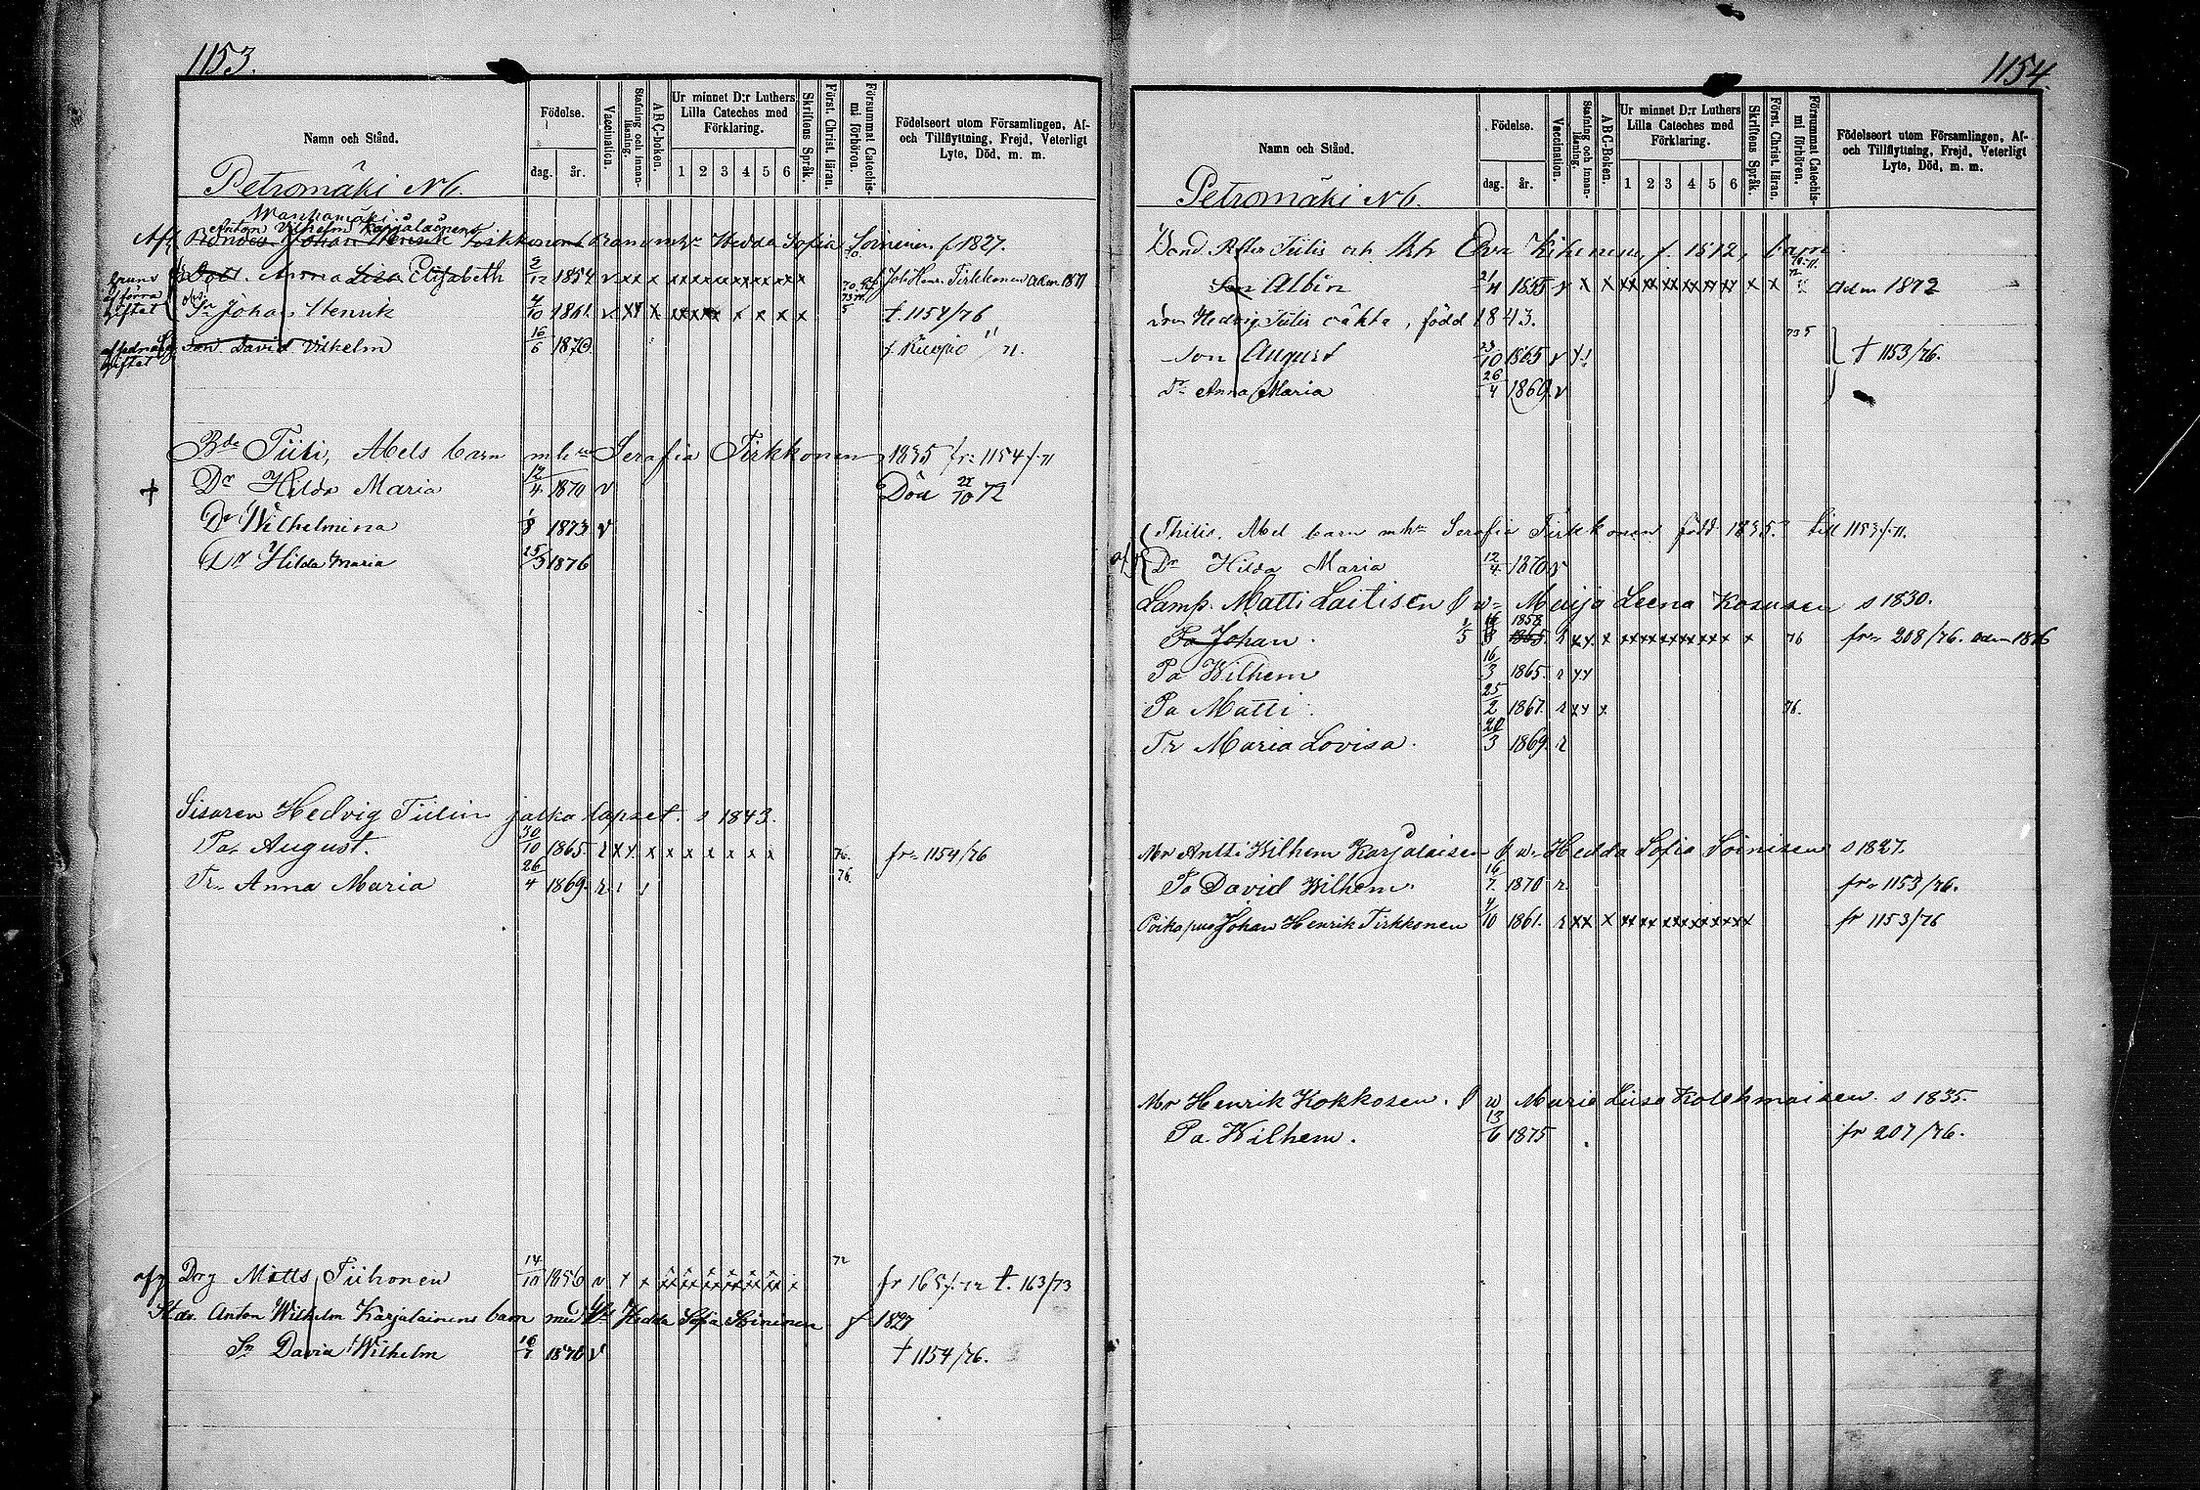 1153.
Namn och Stånd.
Födelse.
dag. år.
Vaccination.
Stafning och innanläsning.
ABC-boken.
Ur minnet D:r Luthers Lilla Cateches med Förklaring.
1 2 3 4 5 6
Skriftens Språk.
Först. Christ. läran.
Försummat Catechismi förhören.
Födelseort utom Församlingen, Af- och Tillflyttning, Frejd, Veterligt Lyte, Död, m. m.
Petromäki N 6.
Anton Vilhelm Karjalainens
Johan Henrik Tirkkonens Barn m hu Hedda Sofia Soininen f 1827.
Dott. Anna Lisa Elisabeth 2/12 1854 v xx x xx xx xx xx xx x Joh Henr. Tirkkonen adm 1871
Sn Johan Henrik 4/10 1861 v xx x xx xx x x x x t. 1154/76
Son David Vilhelm 16/6 1870 f. Kuopio 71.
Bde Tiili, Abels barn m hun Serafia Tirkkonen 1835 fr 1154 f. 71
+ Dr Hilda Maria 12/4 1870 v Död 22/10 72
Dr Wilhelmina 1/8 1873 v
Dr Hilda Maria 25/3 1876
Sisaren Hedvig Tiilin jalka lapset. s 1843.
Pa. August. 30/10 1865. r xx x x x x x x x 76. fr 1154/76
Tr. Anna Maria 26/4 1869. r 76.
afg Drg Matts Tiihonen 14/10 1856 v x x xx xx xx xx xx xx x 72 fr 165 f. 72 t. 163/73
St.dr. Anton Wilhelm Karjalainens barn med Hu Hedda Sofia Soininen f 1827
Sn David Wilhelm 16/7 1870 v t 1154/76.
1154.
Namn och Stånd.
Födelse.
dag. år.
Vaccination.
Stafning och innanläsning.
ABC-Boken.
Ur minnet D:r Luthers Lilla Cateches med Förklaring.
1 2 3 4 5 6
Skriftens Språk.
Först. Christ. läran.
Försummat Catechismi förhören.
Födelseort utom Församlingen, Af- och Tillflyttning, Frejd, Veterligt Lyte, Död, m. m.
Petromäki N 6.
Bond. Petter Tiilis och Hu Eva Kihinen, f. 1812, barn
Son Albin 21/11 1855 v x x xx xx xx xx xx xx x x adm 1872
Hedvig Tiilis oäkta, född 1843.
Son August 23/10 1865 v x 73 5 t 1153/76.
Dr Anna Maria 26/4 1869. v
Thilis. Abel barn m hu Serafia Tirkkonen född 1835. till 1153 f. 71.
Dr Hilda Maria 12/4 1870 v
Lamp. Matti Laitisen w Maija Leena Kosusen s 1830.
Pa Johan. 1858 1865. r xx. x xx xx xx xx xx xx x 76 fr 208/76. adm 1876
Pa Wilhem 16/3 1865. r xx
Pa Matti 25/2 1867. r xx x 76.
Tr Maria Lovisa. 20/3 1869. r
Mr Antti Wilhem Karjalaisen w Hedda Sofia Soinisen s 1827.
Pa David Wilhem 16/7 1870 r fr 1153/76.
Poika puo Johan Henrik Tirkkonen 4/10 1861. r xx x xx xx xx xx xx xx x fr 1153/76
Mr Henrik Kokkosen. w Maria Liisa Kolehmaisen s 1835.
Pa. Wilhem. 13/6 1875 fr 207/76.